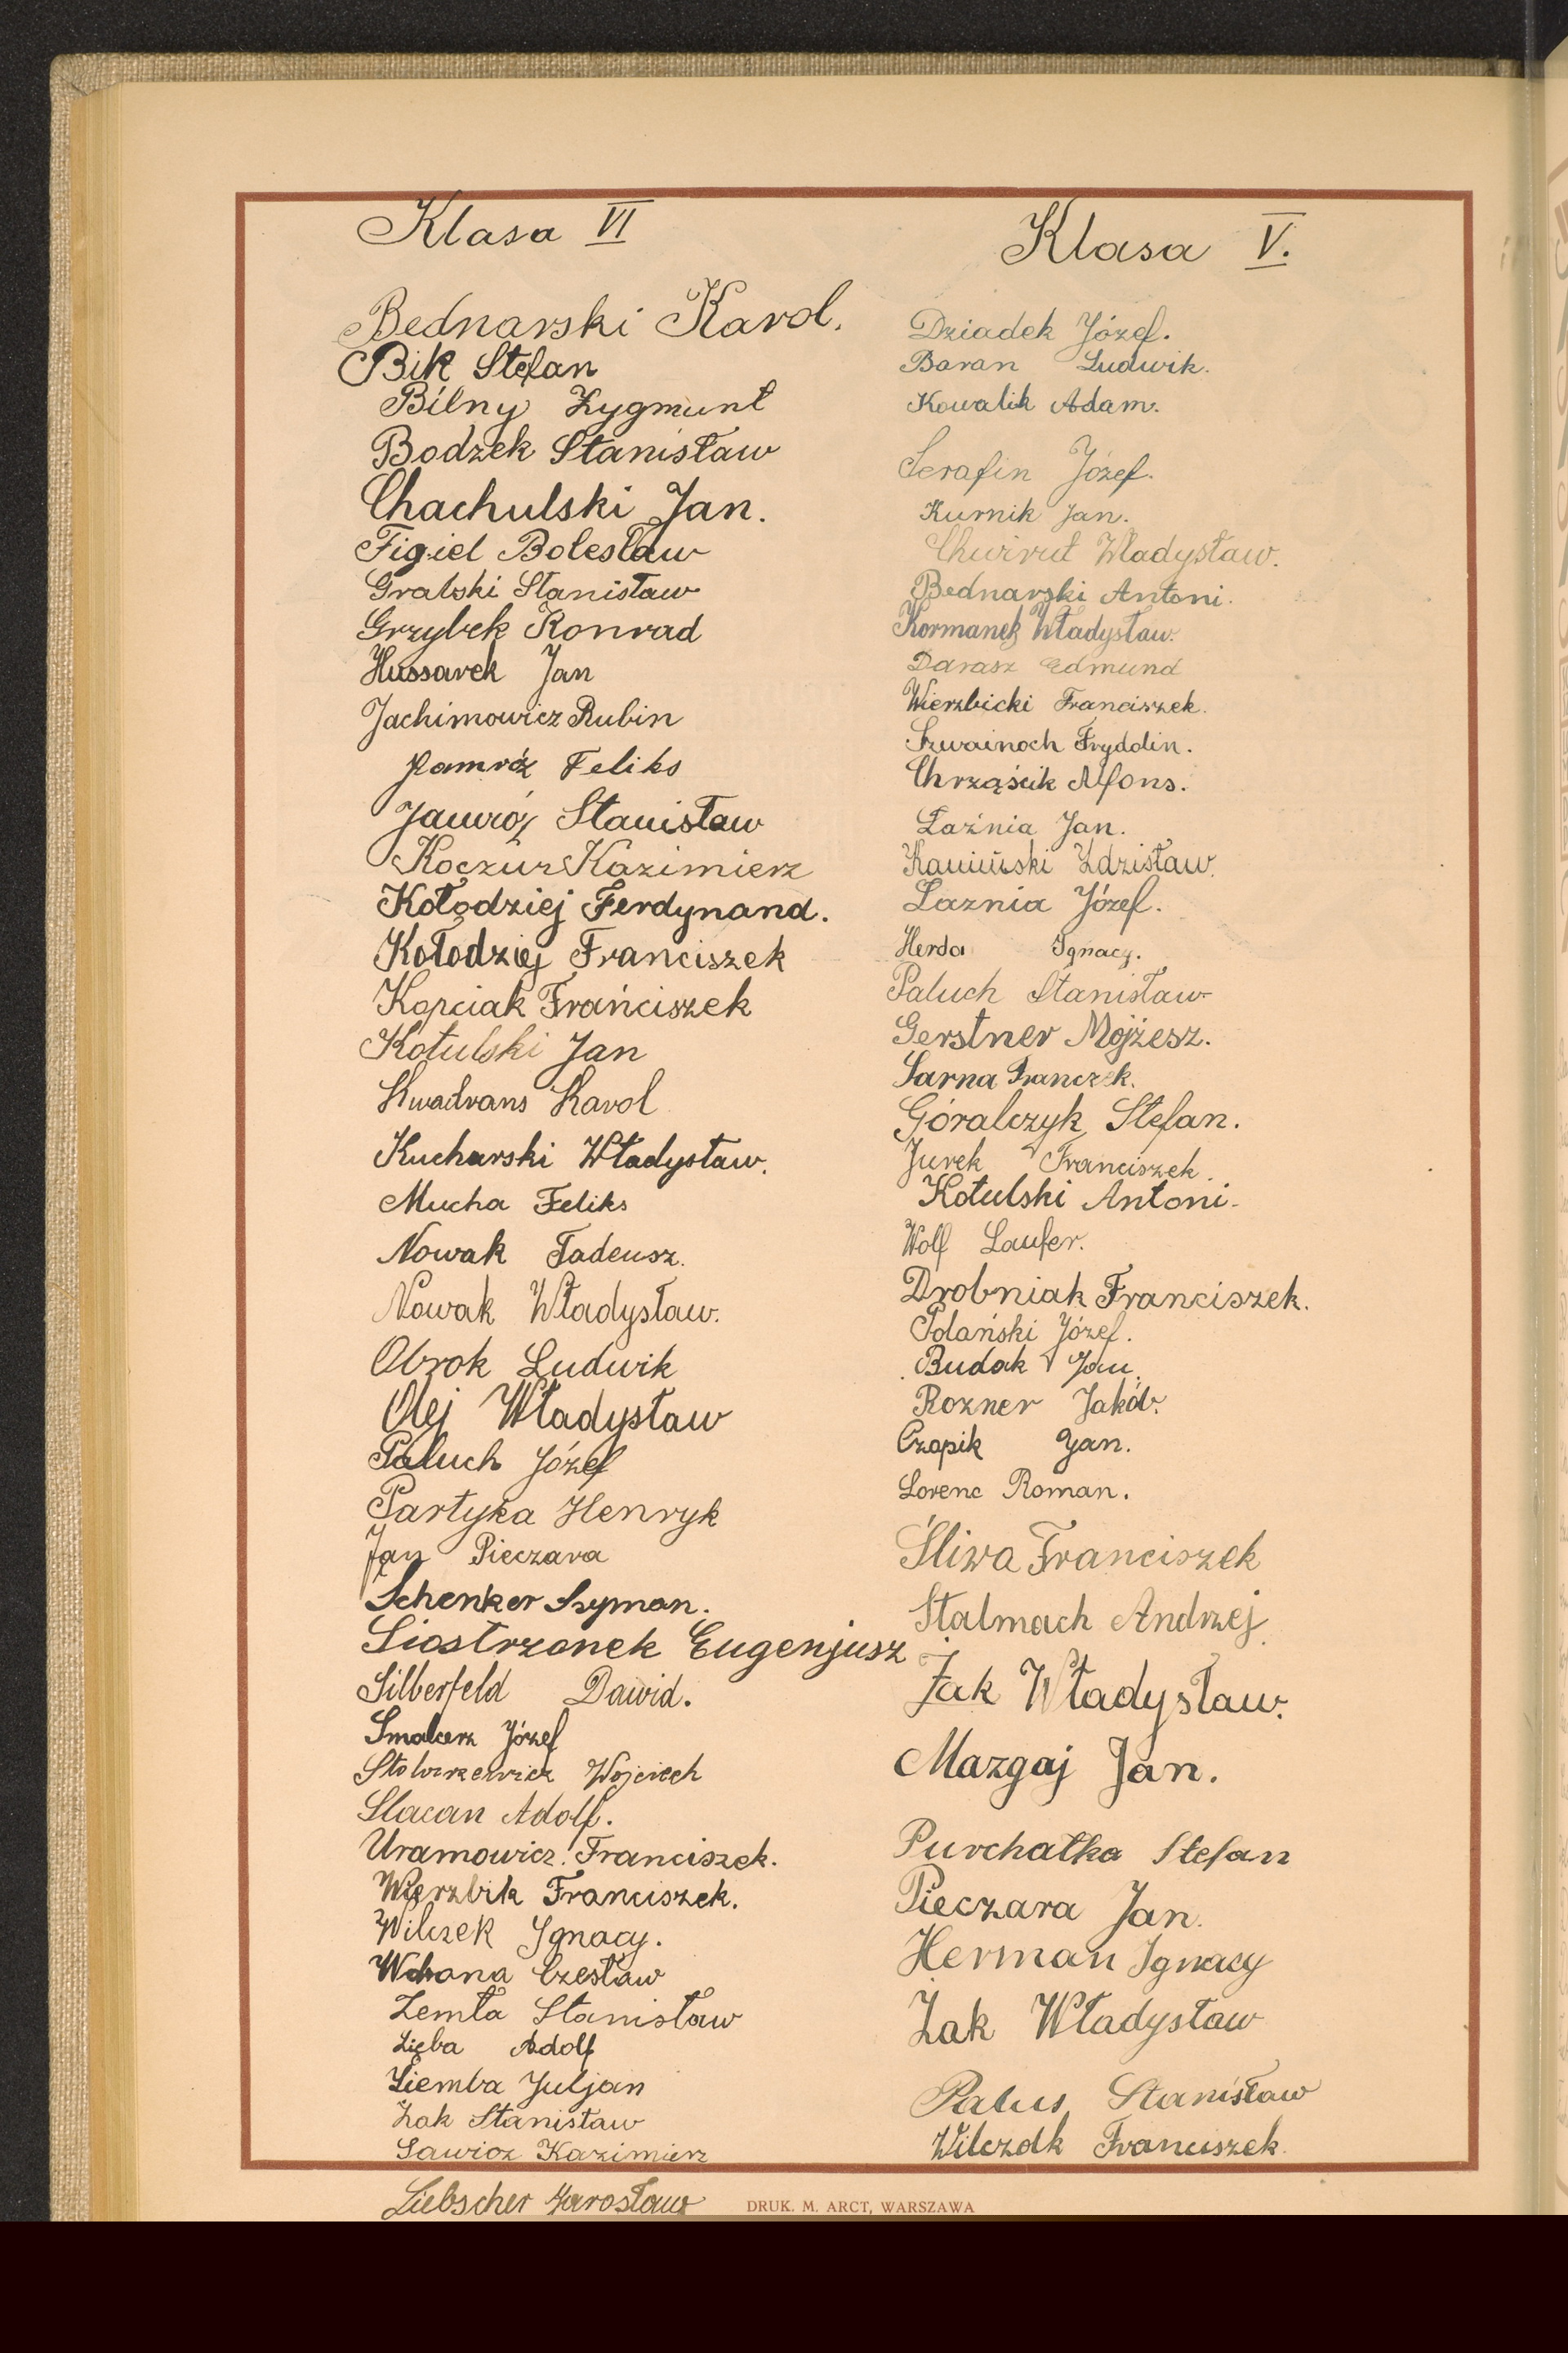 Klasa VI
Bednarski Karol.
Bik Stefan
Bilny Zygmunt
Bodzek Stanisław
Chachulski Jan.
Figiel Bolesław
Grabski Stanisław
Grzybek Konrad
Hussarek Jan
Jachimowicz Rubin
Jamróz Feliks
Jamróz Stanisław
Koczur Kazimierz
Kołodziej Ferdynand.
Kołodziej Franciszek
Kopciak Franciszek
Kotulski Jan
Kwadrans Karol
Kucharski Władysław.
Mucha Feliks
Nowak Tadeusz.
Nowak Władysław.
Obrok Ludwik
Olej Władysław
Paluch Józef
Partyka Henryk
Jan Pieczara
Schenker Szymon.
Siostrzonek Eugenjusz
Silberfeld Dawid.
Smalcerz Józef
Wojciech
Slacan Adolf.
Uramowicz Franciszek.
Wierzbik Franciszek.
Wilczek Ignacy.
Wrona Czesław
Zemła Stanisław
Zięba Adolf
Ziemba Juljan
Żak Stanisław
Sawicz Kazimierz
Liebscher Jarosław
Klasa V.
Dziadek Józef.
Baran Ludwik.
Kowalik Adam.
Serafin Józef.
Kurnik Jan.
Chwirut Władysław.
Bednarski Antoni.
Kormanek Władysław.
Darasz Edmund
Wierzbicki Franciszek.
Szwainoch Fryddlin.
Chrząścik Alfons.
Łaźnia Jan.
Kamiński Zdzisław.
Łaznia Józef.
Herda Ignacy.
Paluch Stanisław
Gerstner Mojżesz.
Sarna Franczek.
Góralczyk Stefan.
Jurek Franciszek.
Kotulski Antoni.
Wolf Laufer.
Drobniak Franciszek.
Polański Józef.
Budak Jan.
Rozner Jakób.
Czopik Jan.
Lorenc Roman.
Śliwa Franciszek
Stalmach Andrzej.
Żak Władysław.
Mazgaj Jan.
Purchałka Stefan
Pieczara Jan.
Herman Ignacy
Żak Władysław
Palus Stanisław
Wilczek Franciszek.
DRUK. M. ARCT, WARSZAWA